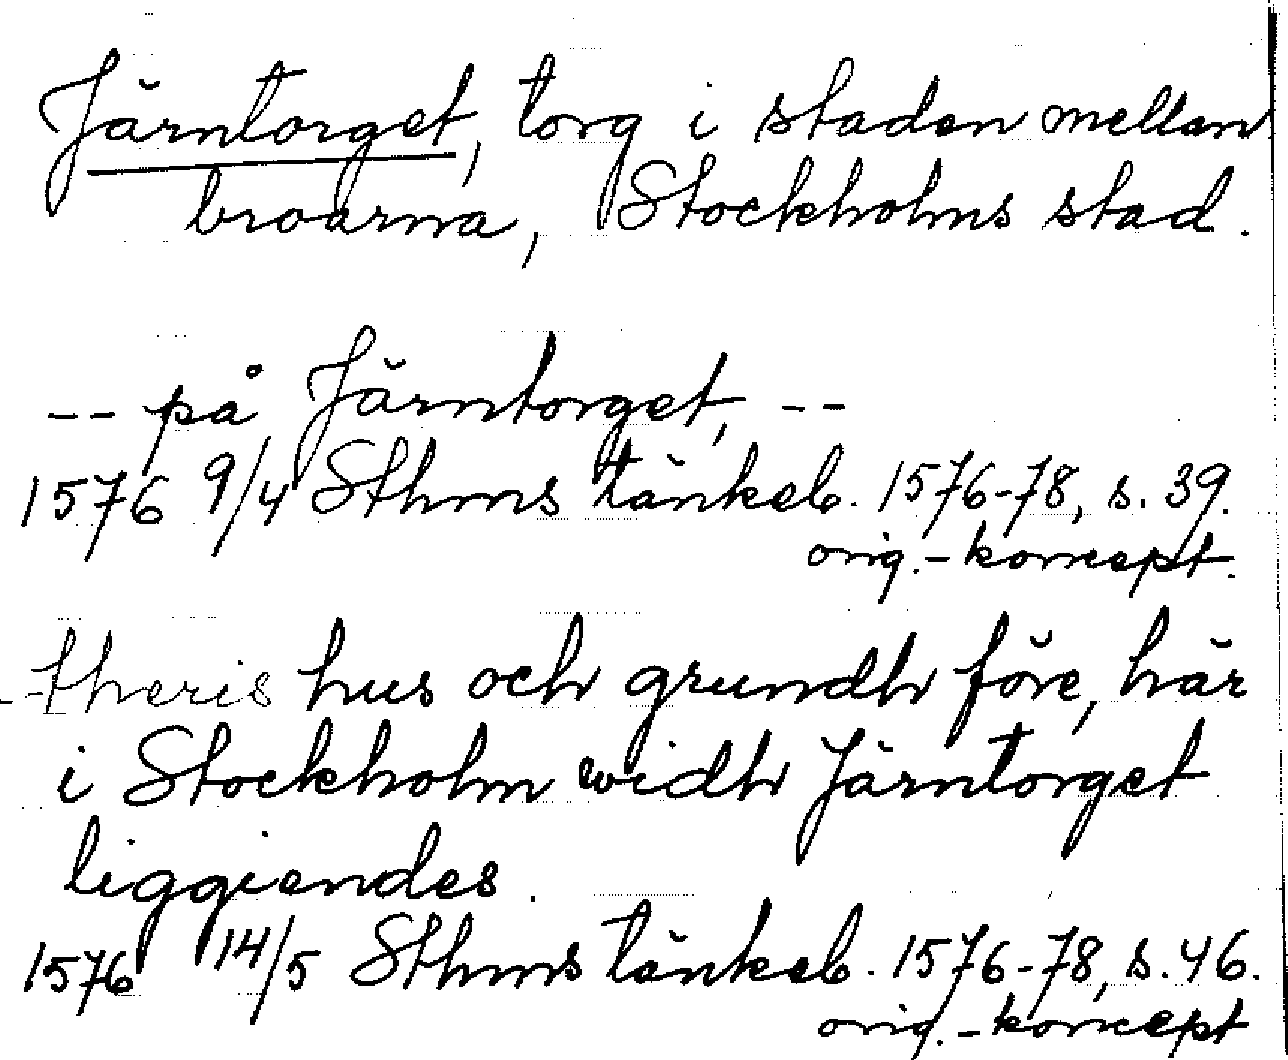 Järntorget, torg i staden mellan
broarna, Stockholms stad.
-- på Järntorget, --
1576 9/4 Sthms tänkeb. 1576-78, s. 39.
orig.-koncept.
--theris hus och grundh före, här
i Stockholm widh Järntorget
liggiendes.
1576 14/5 Sthms tänkeb. 1576-78, s. 46.
orig.-koncept